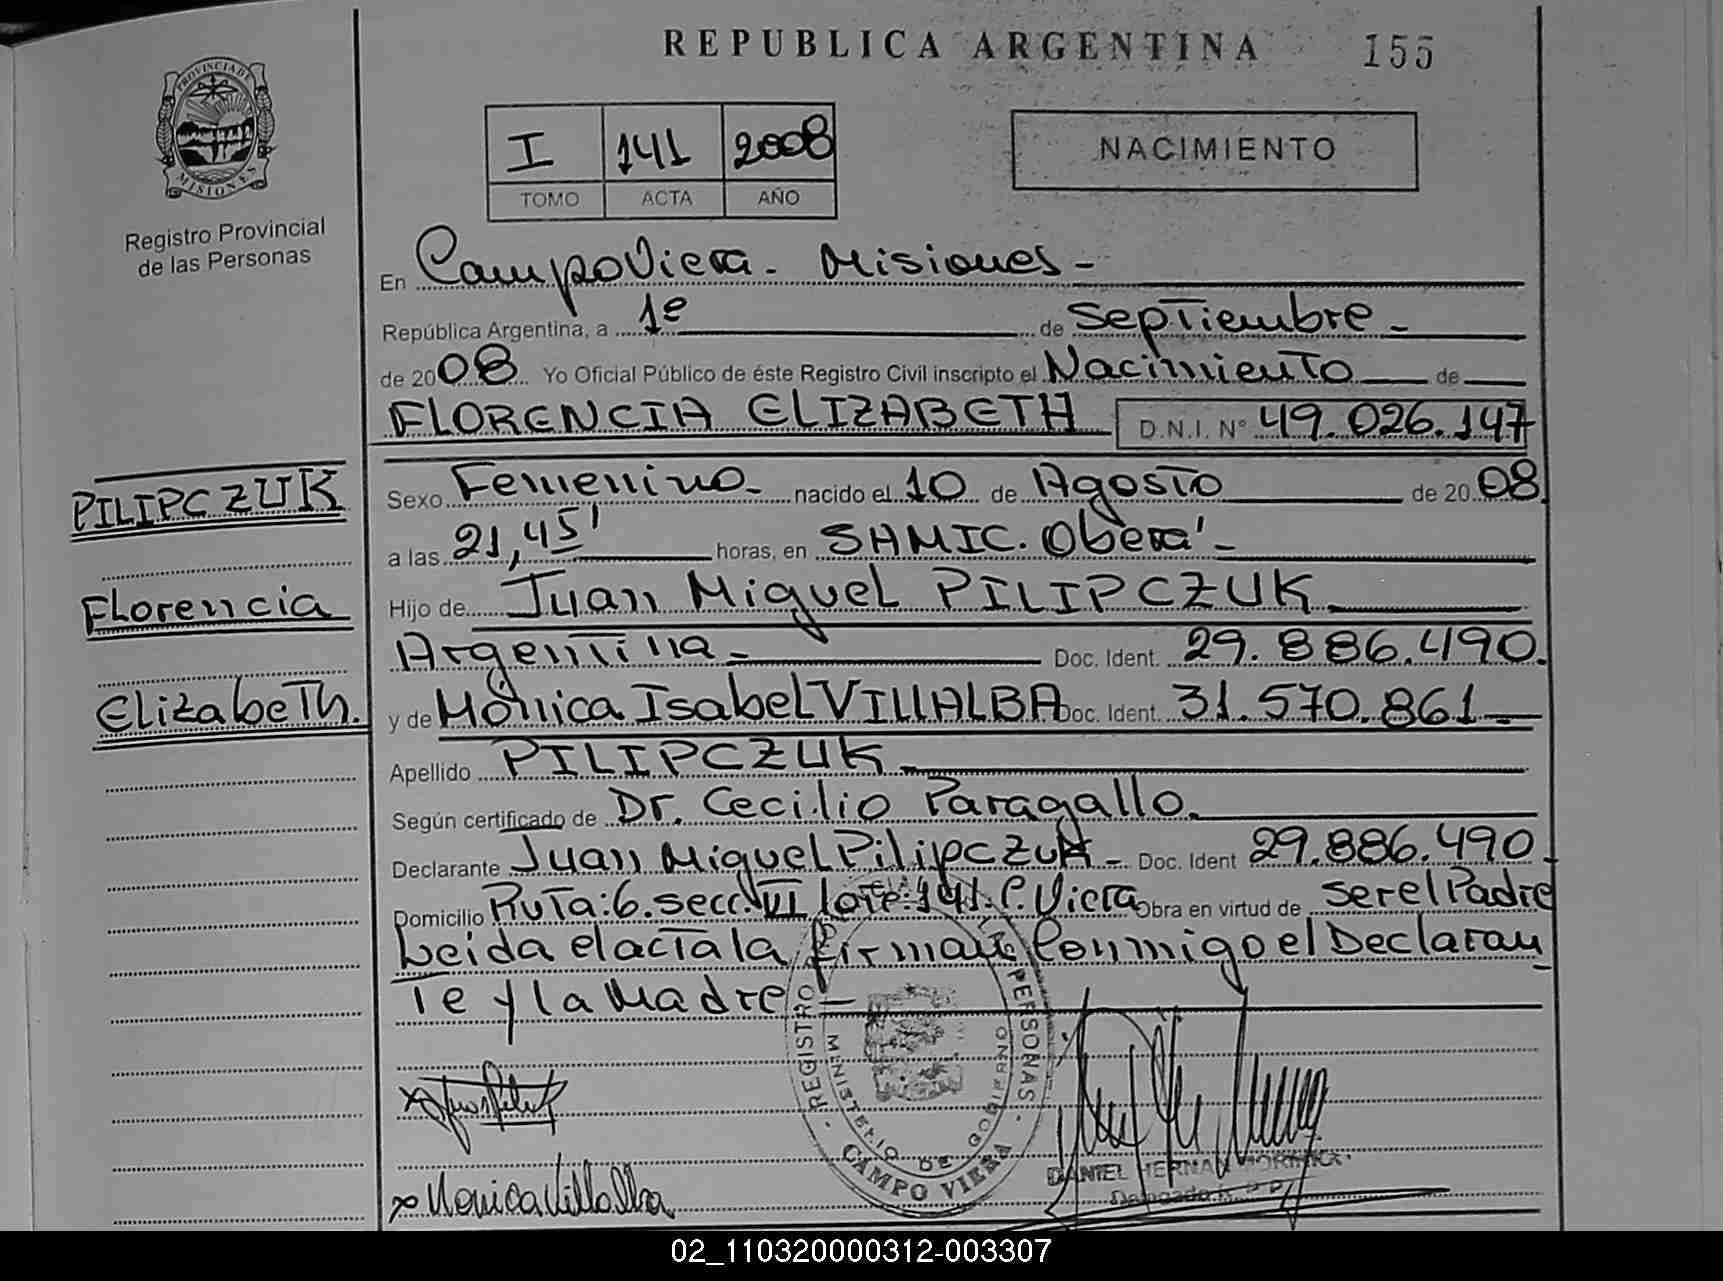 REPUBLICA ARGENTINA 155
PROVINCIA DE
MISIONES
Registro Provincial
de las Personas
I 141 2008
TOMO ACTA AÑO
NACIMIENTO
En Campo Viera - Misiones -
República Argentina, a 1º de Septiembre -
de 2008 Yo Oficial Público de éste Registro Civil inscripto el Nacimiento de
FLORENCIA ELIZABETH D.N.I. Nº 49.026.147
PILIPCZUK
Florencia
Elizabeth.
Sexo Femenino - nacido el 10 de Agosto de 2008
a las 21,45' horas, en SAMIC. Oberá -
Hijo de Juan Miguel PILIPCZUK
Argentina - Doc. Ident. 29.886.490.
y de Mónica Isabel VILLALBA Doc. Ident. 31.570.861 -
Apellido PILIPCZUK
Según certificado de Dr. Cecilio Paragallo.
Declarante Juan Miguel Pilipczuk - Doc. Ident 29.886.490 -
Domicilio Ruta: 6. secc. VI lote: 141. C. Viera Obra en virtud de ser el Padre
Leida el acta la firman Conmigo el Declaran
Te y la Madre
REGISTRO LAS PERSONAS
MINISTERIO DE GOBIERNO
CAMPO VIERA
x Monica Villalba
DANIEL HERNAN
Delegado
02_110320000312-003307